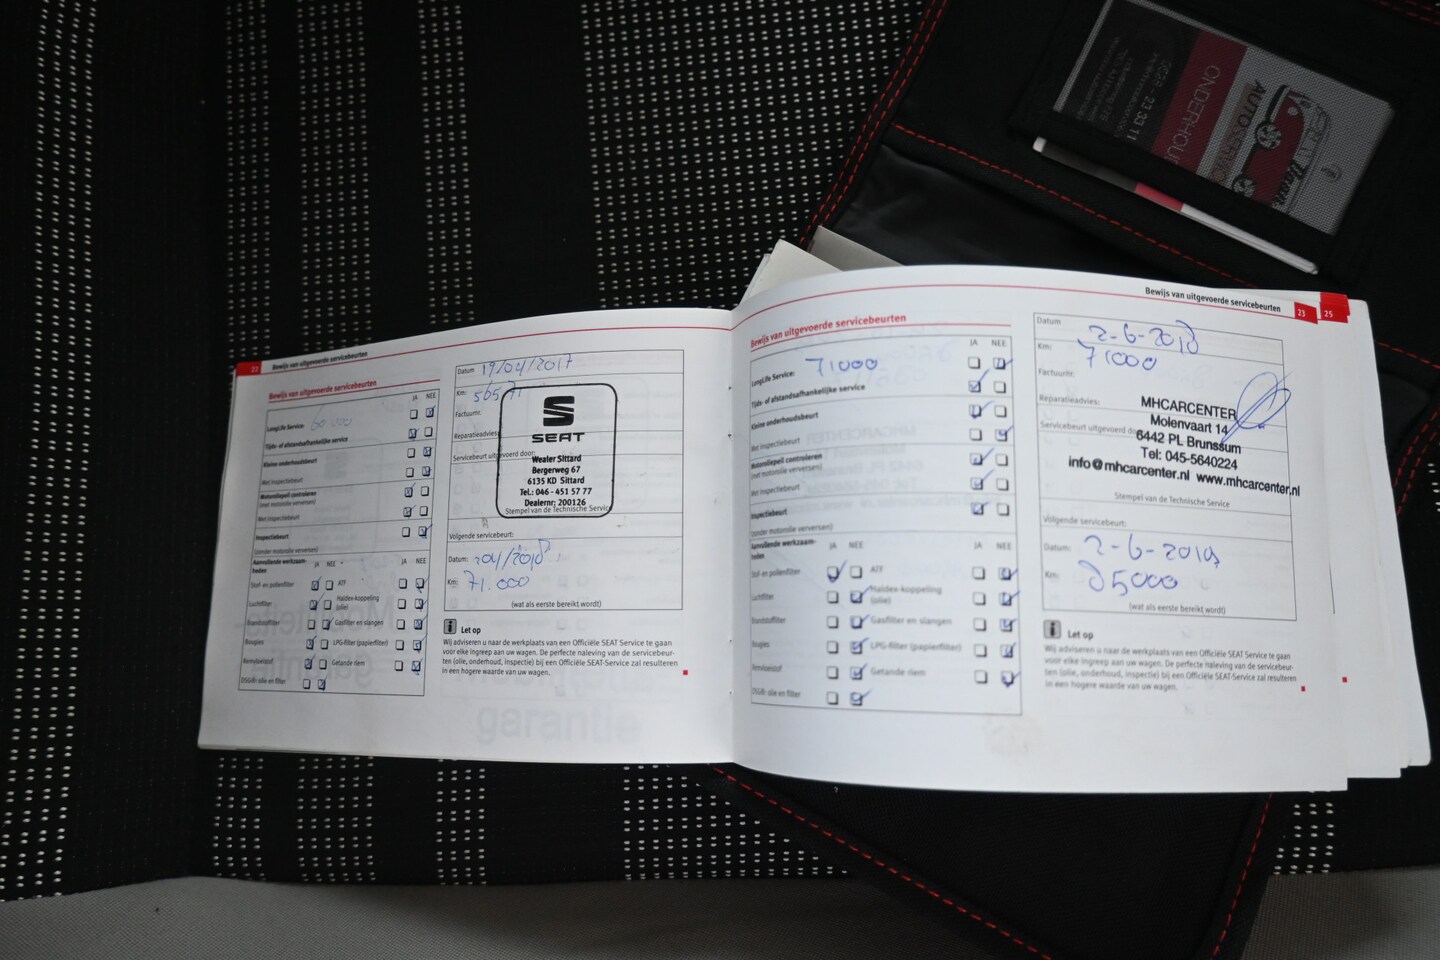 22 Bewijs van uitgevoerde servicebeurten
Bewijs van uitgevoerde servicebeurten
JA NEE
LongLife Service: 60 000
Tijds- of afstandsafhankelijke service
Kleine onderhoudsbeurt
Met inspectiebeurt
Motoroliepeil controleren
(met motorolie verversen)
Met inspectiebeurt
Inspectiebeurt
(zonder motorolie verversen)
Aanvullende werkzaam-
heden
JA NEE
JA NEE
Stof- en pollenfilter
ATF
Luchtfilter
Haldex-koppeling
(olie)
Brandstoffilter
Gasfilter en slangen
Bougies
LPG-filter (papierfilter)
Remvloeistof
Getande riem
DSG®: olie en filter
Datum 19/04/2017
Km:
Factuurnr.
Reparatieadvies:
Servicebeurt uitgevoerd door:
SEAT
Wealer Sittard
Bergerweg 67
6135 KD Sittard
Tel.: 046 - 451 57 77
Dealernr: 200126
Stempel van de Technische Service
Volgende servicebeurt:
Datum: /2018
Km: 71.000
(wat als eerste bereikt wordt)
i Let op
Wij adviseren u naar de werkplaats van een Officiële SEAT Service te gaan
voor elke ingreep aan uw wagen. De perfecte naleving van de servicebeur-
ten (olie, onderhoud, inspectie) bij een Officiële SEAT-Service zal resulteren
in een hogere waarde van uw wagen.
garantie
Bewijs van uitgevoerde servicebeurten 23
25
Bewijs van uitgevoerde servicebeurten
JA NEE
LongLife Service: 71000
Tijds- of afstandsafhankelijke service
Kleine onderhoudsbeurt
Met inspectiebeurt
Motoroliepeil controleren
(met motorolie verversen)
Met inspectiebeurt
Inspectiebeurt
(zonder motorolie verversen)
Aanvullende werkzaam-
heden
JA NEE
JA NEE
Stof- en pollenfilter
ATF
Luchtfilter
Haldex-koppeling
(olie)
Brandstoffilter
Gasfilter en slangen
Bougies
LPG-filter (papierfilter)
Remvloeistof
Getande riem
DSG®: olie en filter
Datum 2-6-2018
Km: 71000
Factuurnr.
Reparatieadvies:
Servicebeurt uitgevoerd door:
MHCARCENTER
Molenvaart 14
6442 PL Brunssum
Tel: 045-5640224
info@mhcarcenter.nl www.mhcarcenter.nl
Stempel van de Technische Service
Volgende servicebeurt:
Datum: 2-6-2019
Km: 85000
(wat als eerste bereikt wordt)
i Let op
Wij adviseren u naar de werkplaats van een Officiële SEAT Service te gaan
voor elke ingreep aan uw wagen. De perfecte naleving van de servicebeur-
ten (olie, onderhoud, inspectie) bij een Officiële SEAT-Service zal resulteren
in een hogere waarde van uw wagen.
AUTOSERVICE
ONDERHOUD